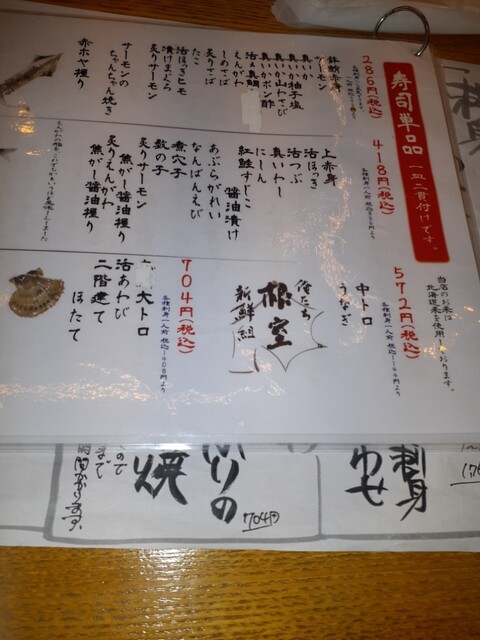 寿司単品 一皿二貫付けです。
286円(税込)
サーモン
真いか
真いか柚子塩
真いか山わさび
真いかポン酢
活〆真鯛
えんがわ
しめさば
炙りさば
たこ
活ほっきヒモ
漬けまぐろ
炙りサーモン
サーモンの
ちゃんちゃん焼き
赤ホヤ握り
418円(税込)
上赤身
活ほっき
活つぶ
真いわし
にしん
紅鮭すじこ
醤油漬け
あぶらがれい
なんばんえび
煮穴子
数の子
炙りサーモン
焦がし醤油握り
炙りえんがわ
焦がし醤油握り
当店のお米は
北海道米を使用しております。
572円(税込)
中トロ
うなぎ
俺たち
根室
新鮮組
704円(税込)
大トロ
活あわび
二階建て
ほたて
刺身
ぶりの
焼
704円